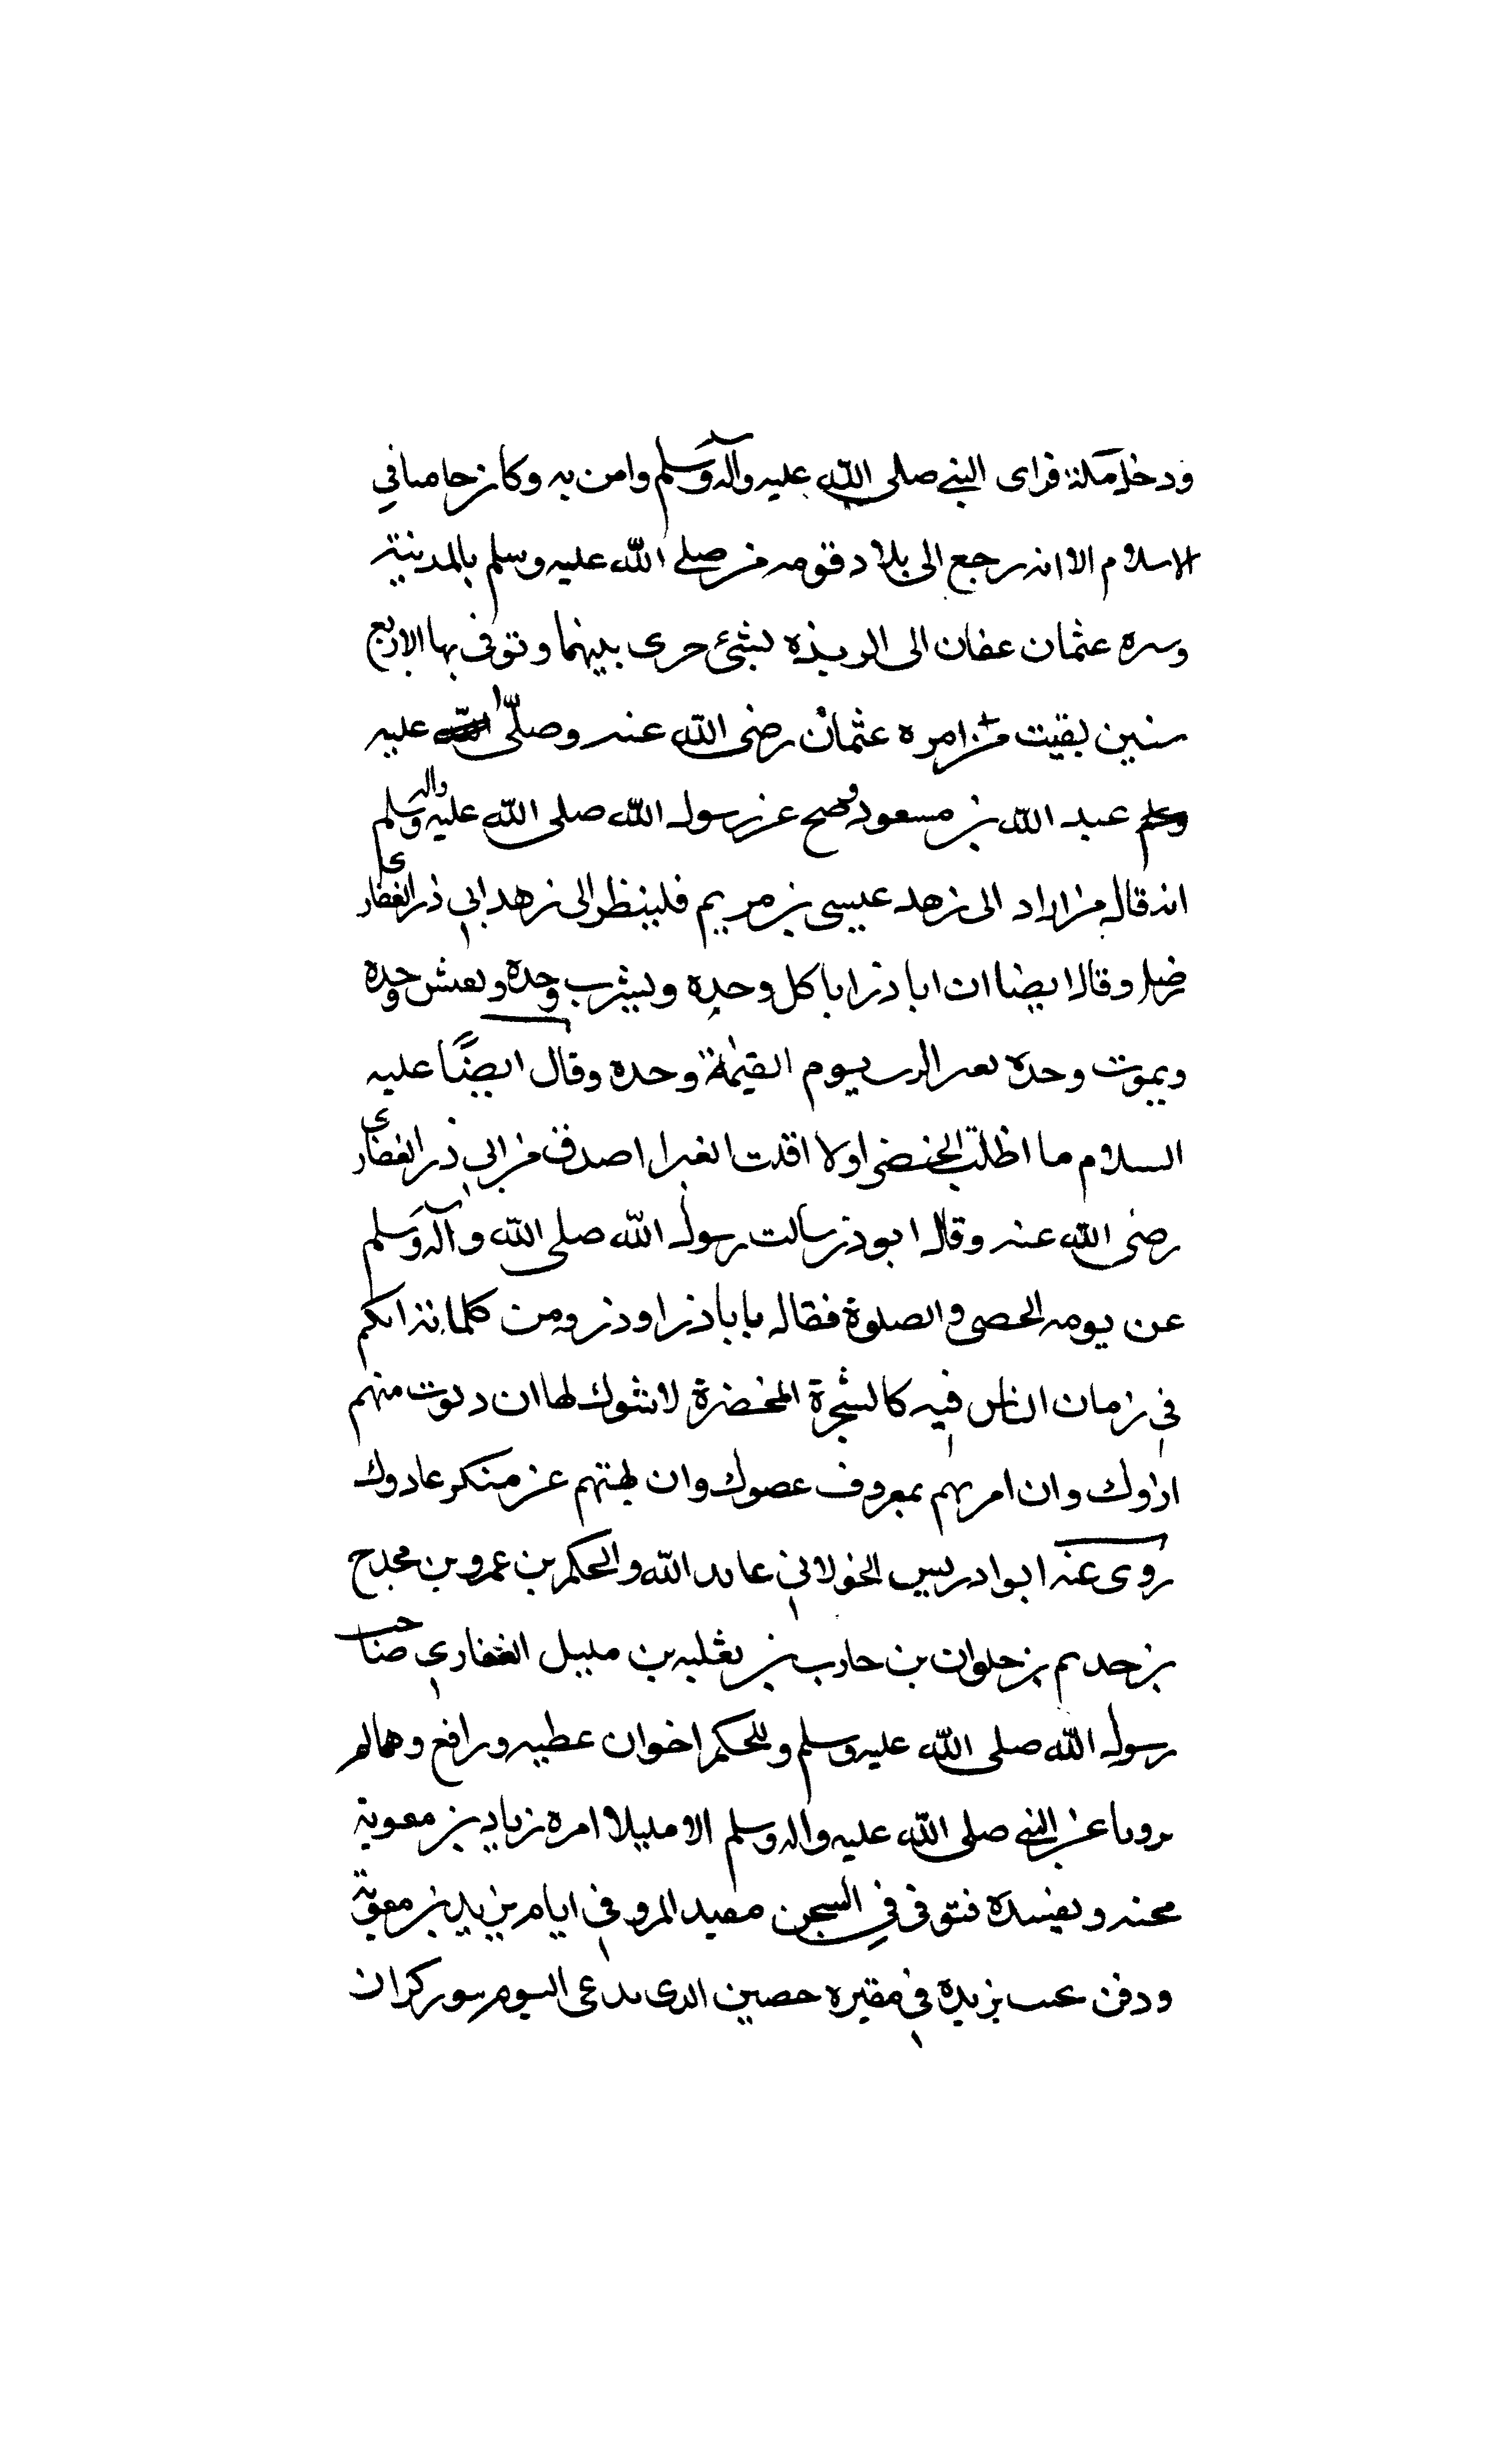 ودخل مكة فراى النبي صلى الله عليه وآله وسلم وامن به وكان خامسا في
الاسلام الا انه رجع الى بلاد قومه من صلى الله عليه وسلم بالمدينة
وسره عثمان عفان الى الربذه لشئ حرى بينهما وتوفى بها لاربع
سنين بقيت من امره عثمان رضى الله عنه وصلّى الله عليه
عبد الله بن مسعود وصح عن رسول الله صلى الله عليه واله وسلم
انه قال من اراد الى زهد عيسى بن مريم فلينظر الى زهد ابي ذر الغفارى
وقال ايضا ان ابا ذر ياكل وحده ويشرب وحده وىعىش وحده
ويموت وحده يوم القيٰمة وحده وقال ايضًا عليه
السلام ما اظلت الخضرا ولا اقلت الغبرا اصدق من ابي ذر الغفارى
رضى الله عنه وقال ابوذر سالت رسول الله صلى الله وآله وسلم
عن يومه الحصى والصلوة فقال يا باذر او ذر ومن كلماته انكم
في زمان الناس فيه كالشجرة المخضرة لا شوك لها ان دنوت منهم
اراوك وان امرتهم بمعروف عصوك وان نهيتهم عن منكر عادوك
روى عنه ابو ادريس الخولاني عاىد الله والحكم بن عمرو بن مجدح
بن حديم بن حلوان بن حارب بن ثعلبه بن مليل الغفاري صاحب
رسول الله صلى الله عليه وسلم وللحكم اخوان عطيه ورافع وهما لم
يرويا عن النبي صلى الله عليه واله وسلم الا قليلا امره زياد بن معوية
فتوفى في السجن مقيد المرو في ايام يزيد بن معوية
ودفن بجنب بريده في مقبره حصين الدى ىدعى اليوم